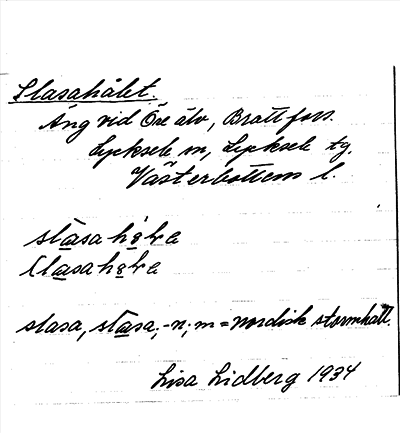 Slasahålet.
Äng vid Öre älv, Brattfors
Lycksele sn, Lycksele tg.
Västerbottens l.
slasa, slasa, -n; m = nordisk stormhatt.
Lisa Lidberg 1934